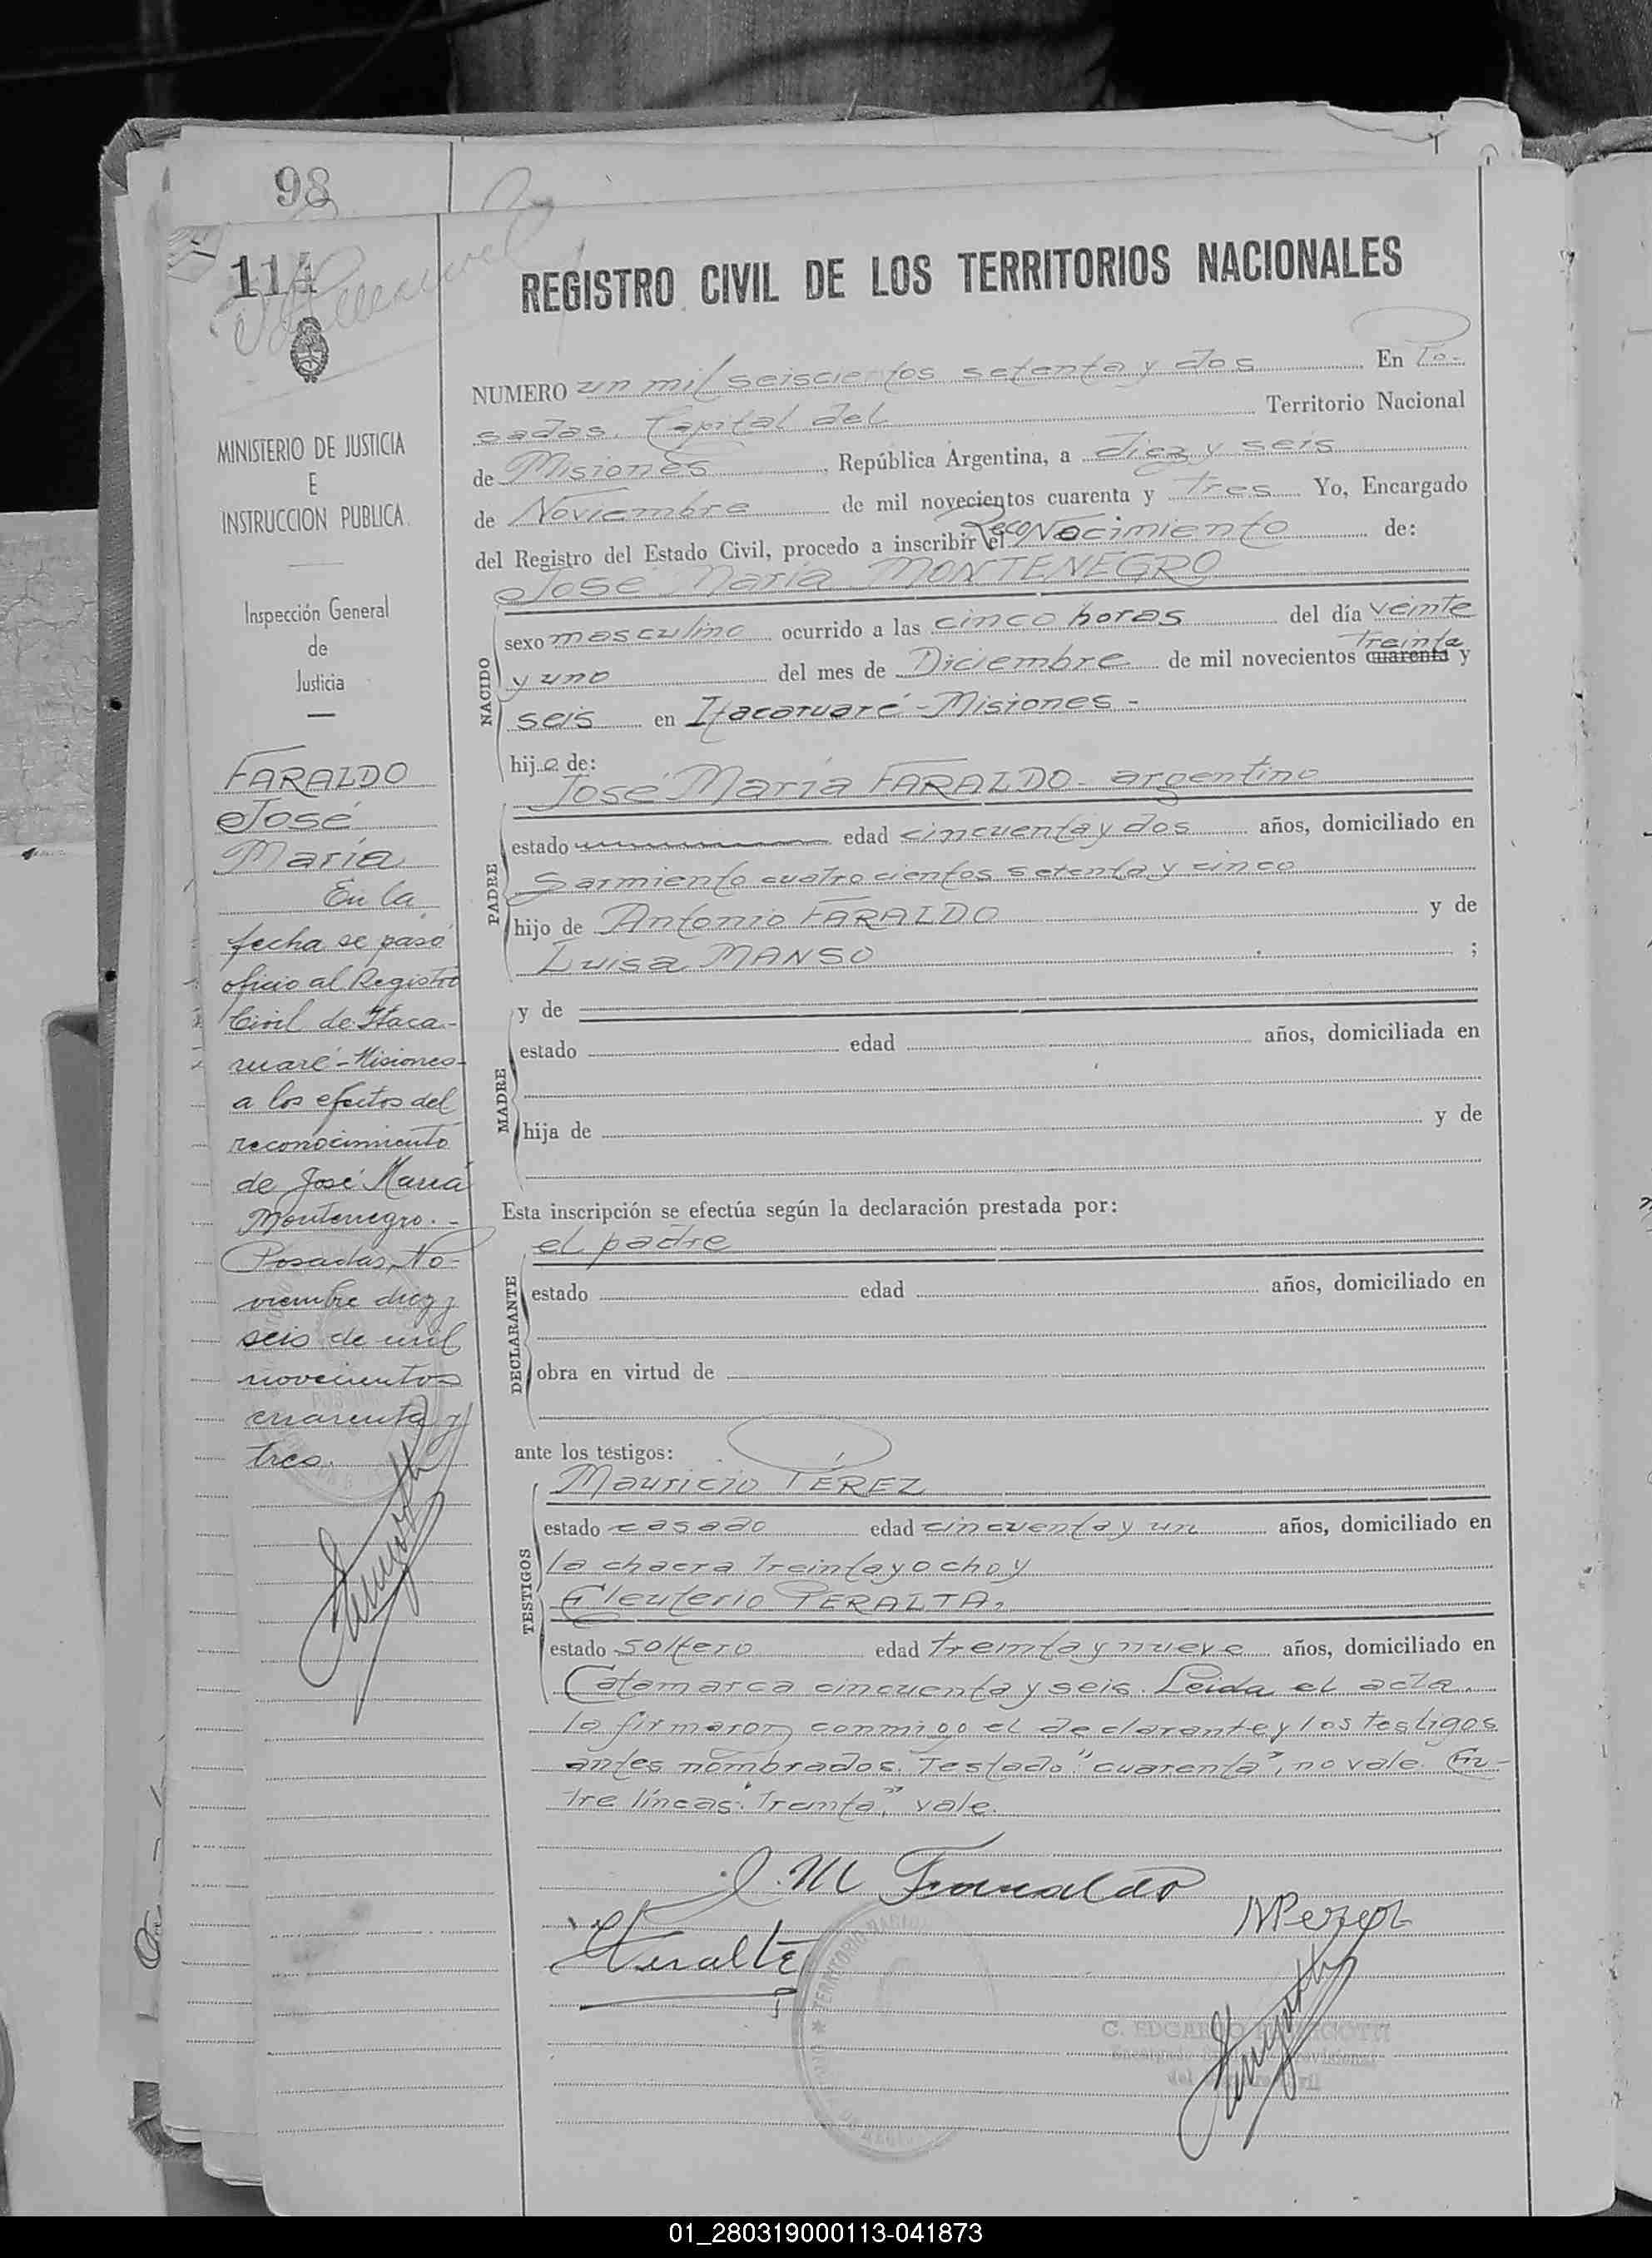 98
114
REGISTRO CIVIL DE LOS TERRITORIOS NACIONALES
MINISTERIO DE JUSTICIA
E
INSTRUCCION PUBLICA
Inspección General
de
Justicia
FARALDO
José
María
En la
fecha se pasó
oficio al Registro
Civil de Itaca-
ruaré - Misiones -
a los efectos del
reconocimiento
de José María
Montenegro. -
Posadas, No-
viembre diez y
seis de mil
novecientos
cuarenta y
tres.
NUMERO un mil seiscientos setenta y dos En Po-
sadas, Capital del Territorio Nacional
de Misiones, República Argentina, a diez y seis
de Noviembre de mil novecientos cuarenta y tres Yo, Encargado
del Registro del Estado Civil, procedo a inscribir el Reconocimiento de:
José María MONTENEGRO
NACIDO
sexo masculino ocurrido a las cinco horas del día veinte
treinta
y uno del mes de Diciembre de mil novecientos cuarenta y
seis en Itacaruaré - Misiones -
hijo de:
PADRE
José María FARALDO - argentino
estado edad cincuenta y dos años, domiciliado en
Sarmiento cuatrocientos setenta y cinco
hijo de Antonio FARALDO y de
Luisa MANSO ;
MADRE
y de
estado edad años, domiciliada en
hija de y de
Esta inscripción se efectúa según la declaración prestada por:
DECLARANTE
el padre
estado edad años, domiciliado en
obra en virtud de
ante los testigos:
TESTIGOS
Mauricio PÉREZ
estado casado edad cincuenta y un años, domiciliado en
la chacra treinta y ocho y
Eleuterio PERALTA,
estado soltero edad treinta y nueve años, domiciliado en
Catamarca cincuenta y seis. Leída el acta,
la firmaron conmigo el declarante y los testigos
antes nombrados. Testado "cuarenta", no vale. En-
tre líneas: "treinta", vale.
J. M Faraldo
M Perez
EPeralta
TERRITORIO NACIONAL
C. EDGARDO
01_280319000113-041873